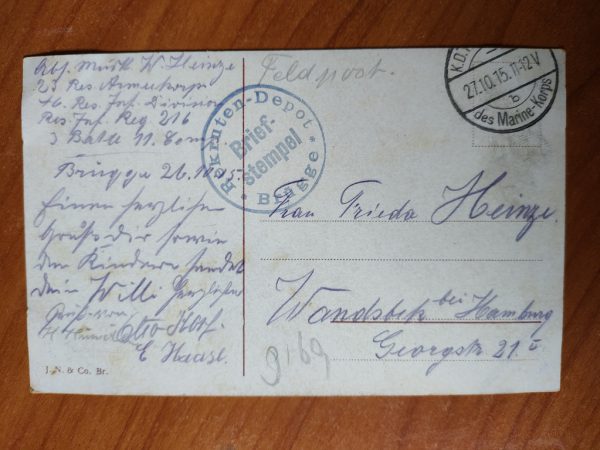 Abs. Musk. W. Heinze
23 Res. Armeekorps
46. Res. Inf. Division
Res. Inf. Reg 216
3 Batl. 11. Comp.
Brügge 26.10.15.
Einen herzlichen
Gruß Dir sowie
den Kindern sendet
dein Willi
Otto
E Haase.
J. N. & Co. Br.
Feldpost.
Rekruten-Depot
Brief-
stempel
* Brügge *
K.D.
27.10.15. 11-12V
b
des Marine-Korps
Frau Frieda Heinze
Wandsbek bei Hamburg
Georgstr 21. I